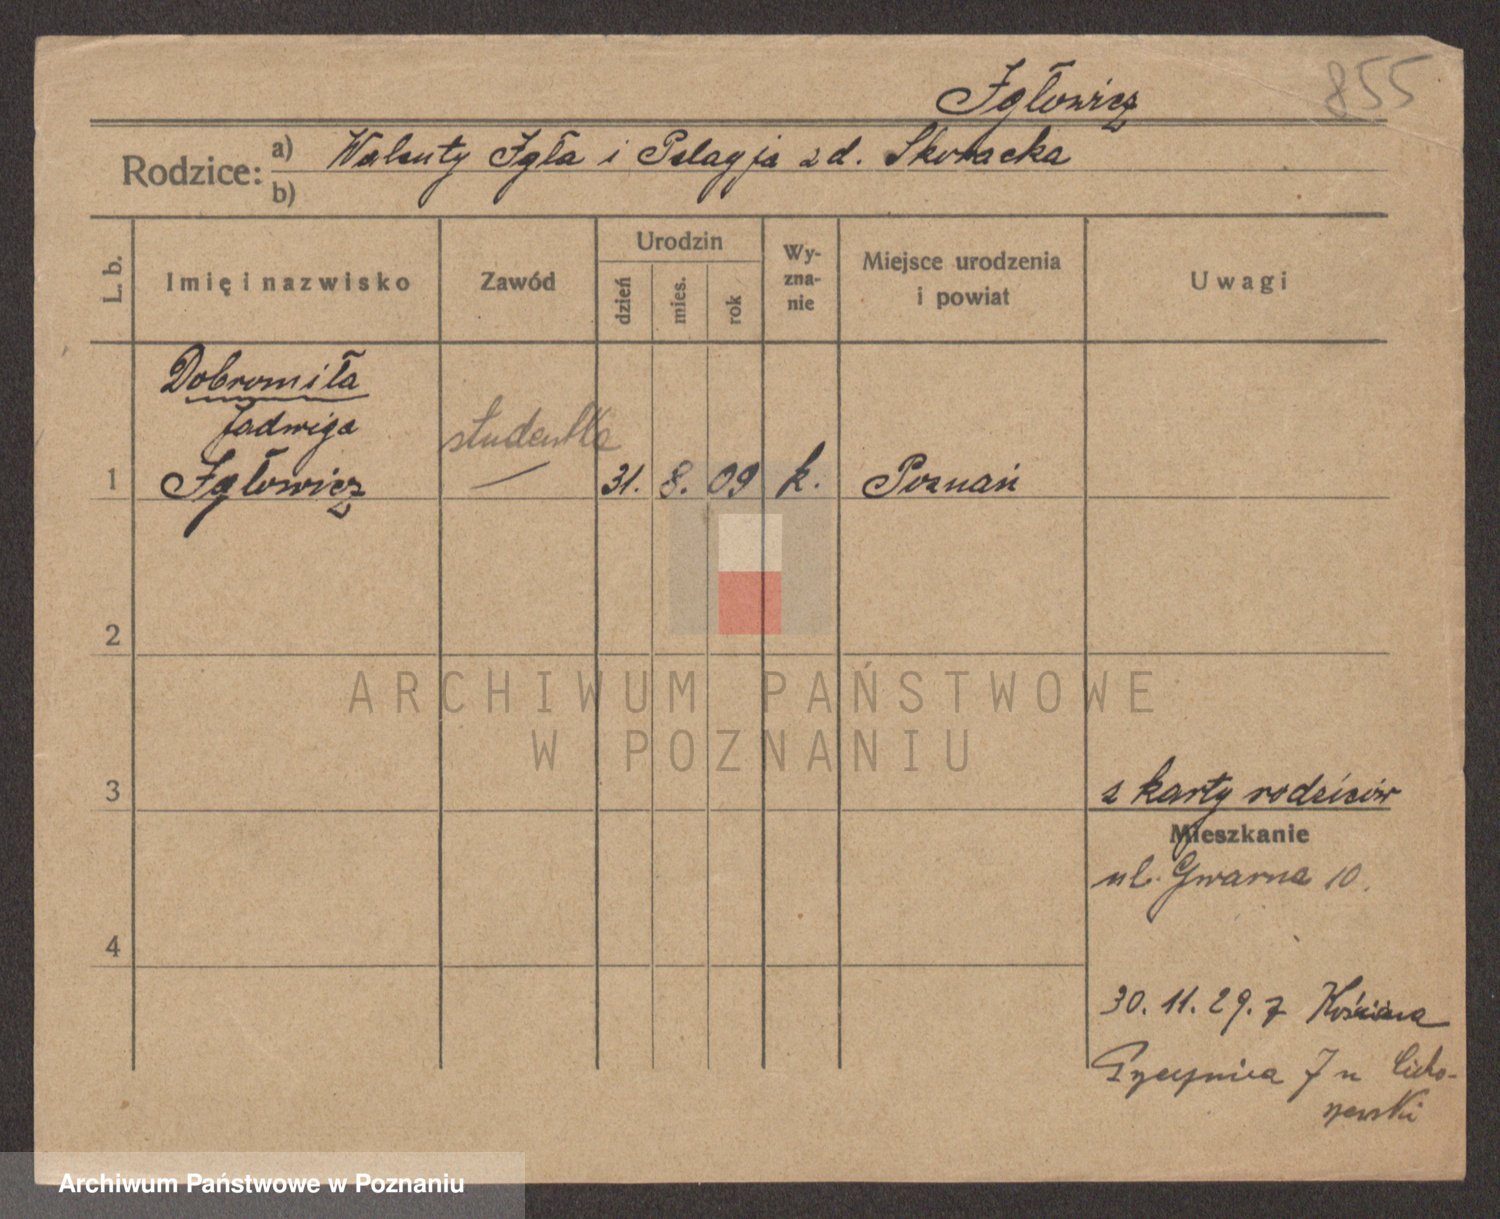 Igłowicz 855
Rodzice: a) Walenty Igła i Pelagja z d. Skoracka
b)
L. b. Imię i nazwisko Zawód Urodzin dzień mies. rok Wy-zna-nie Miejsce urodzenia i powiat Uwagi
Dobromiła
Jadwiga studentka
1 Igłowicz — 31. 8. 09 k. Poznań
2
ARCHIWUM PAŃSTWOWE
W POZNANIU
3 z karty rodziców
Mieszkanie
ul. Gwarna 10.
4
30. 11. 29. z Kościana
7 u Cicho-
żewski
Archiwum Państwowe w Poznaniu